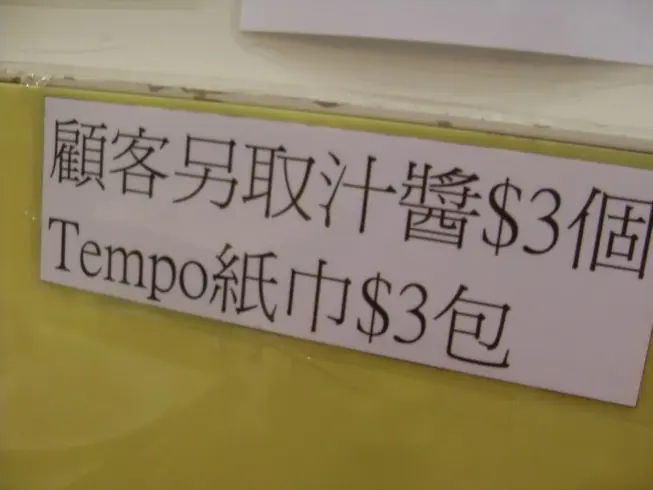 顧客另取汁醬$3個
Tempo紙巾$3包